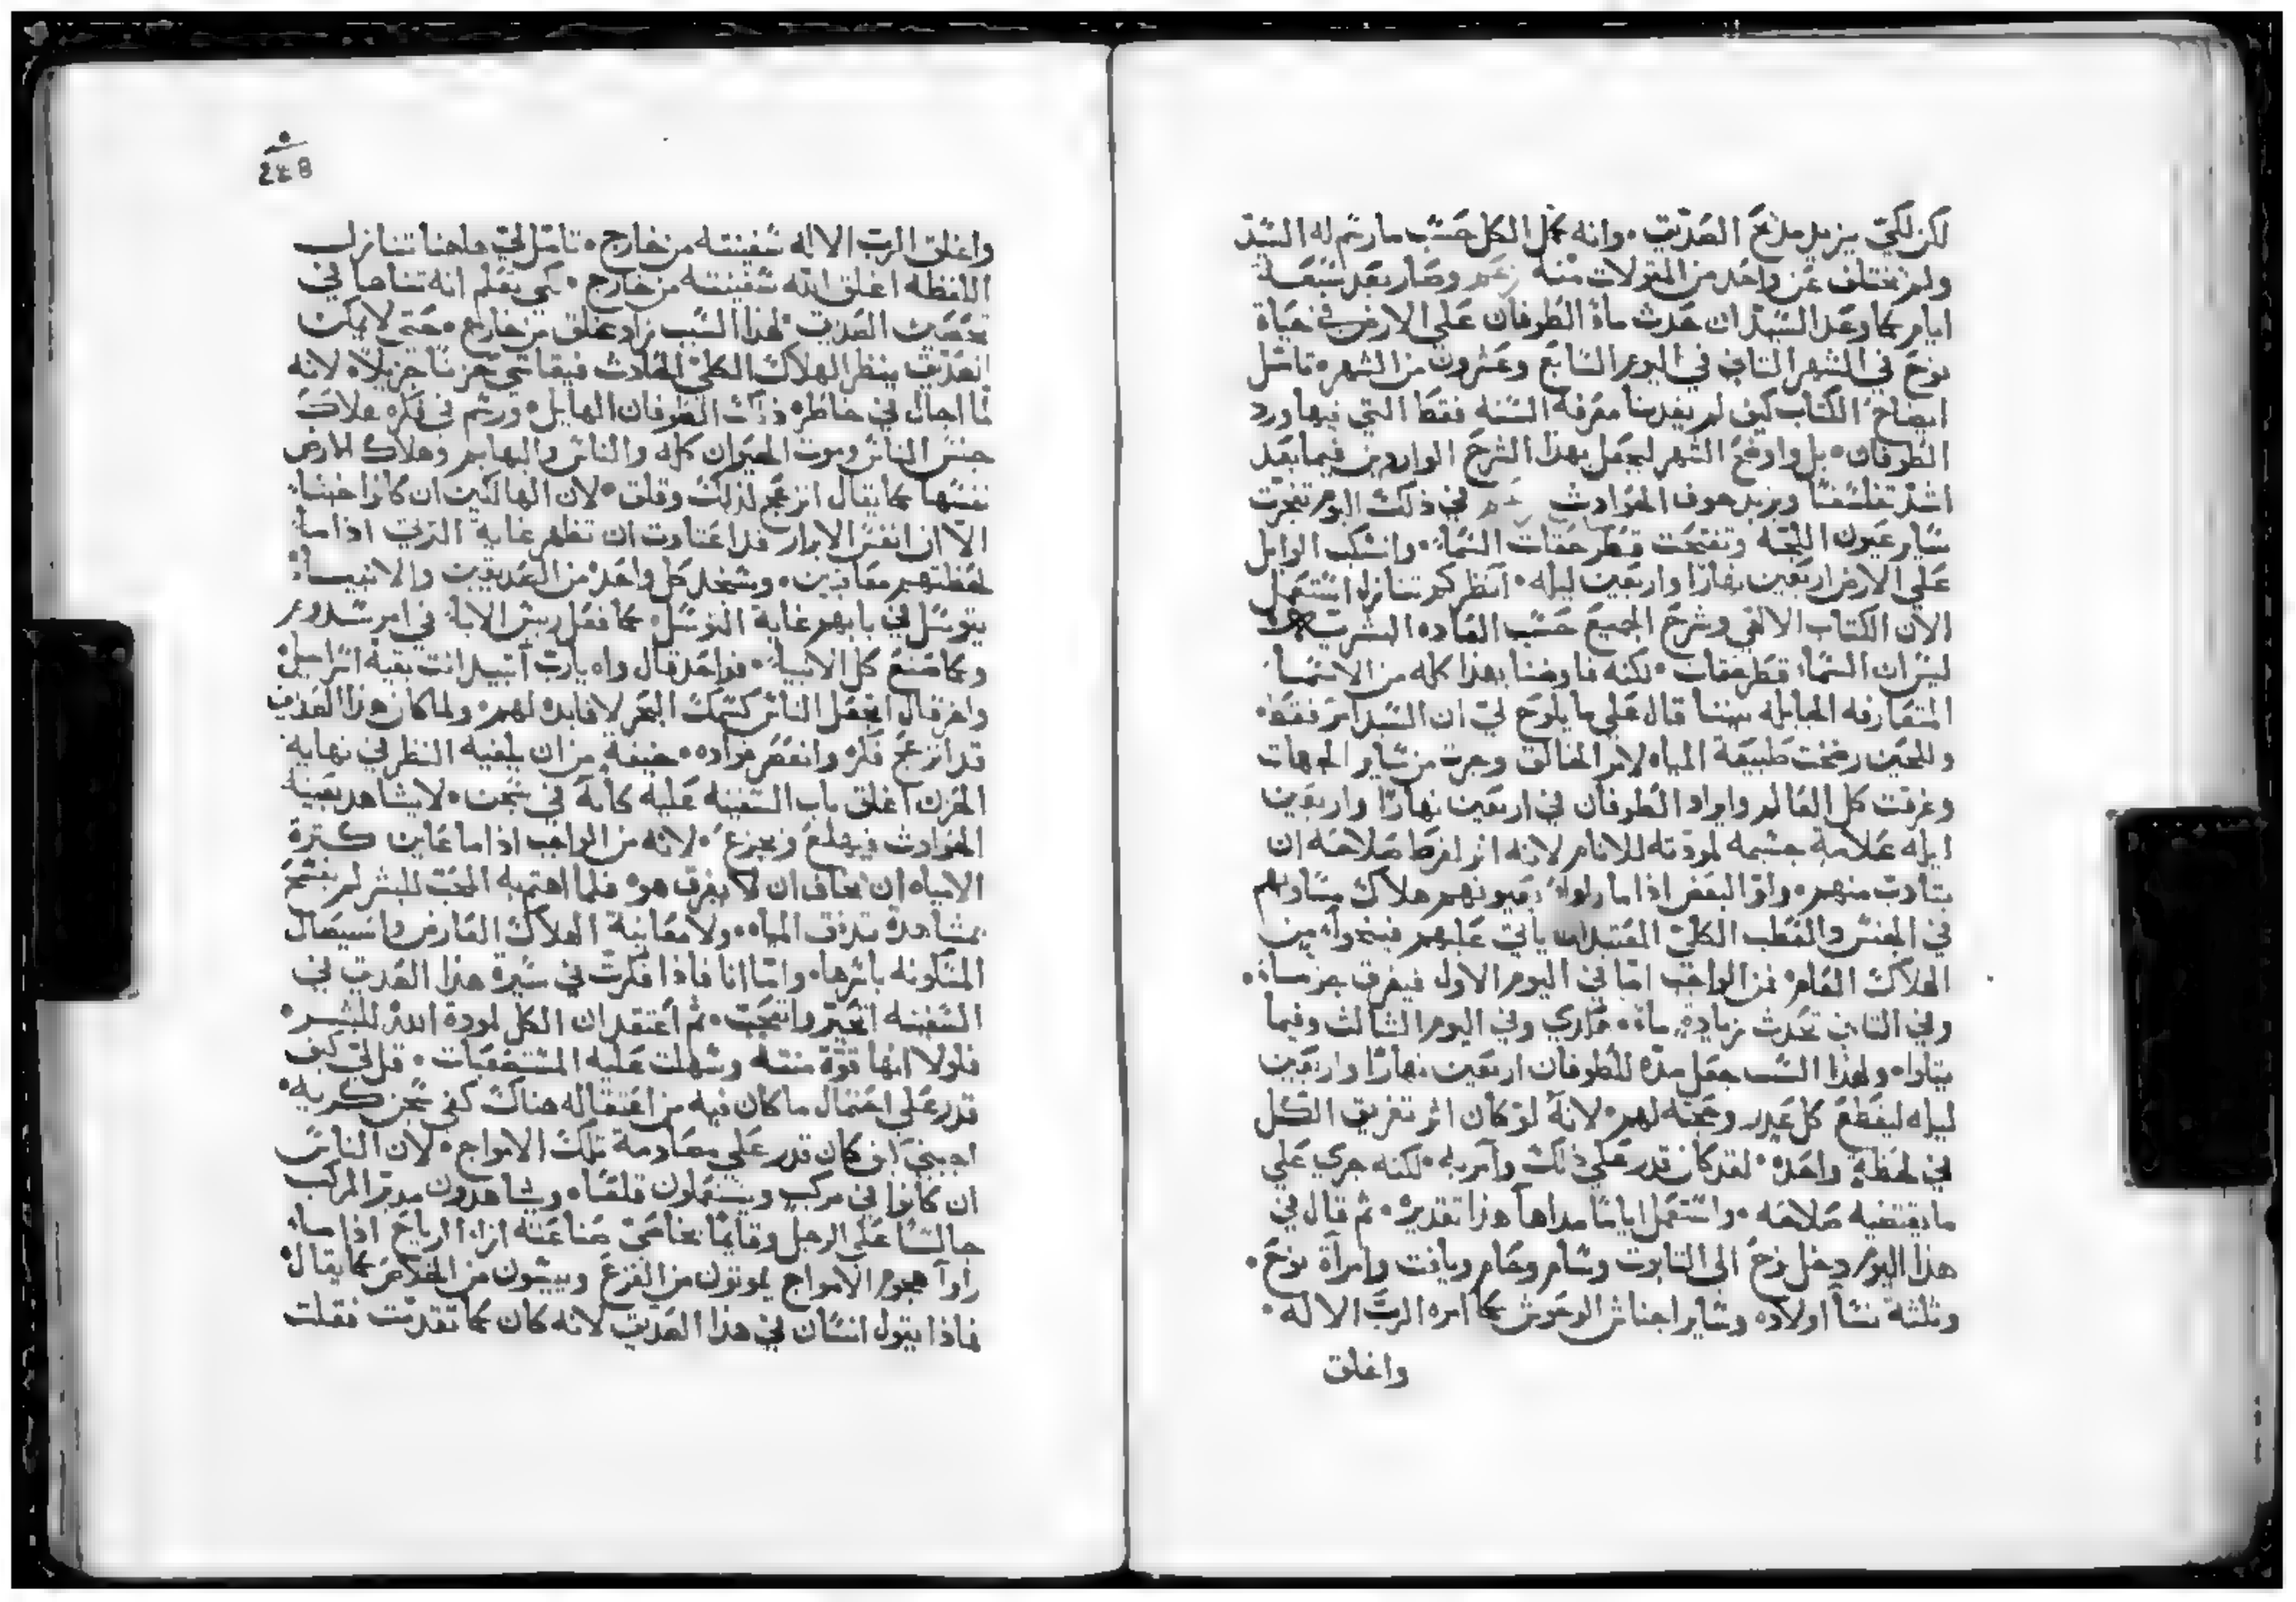 لكن لكي يزيد مدح الصديق • وانه كمل الكل حسب ما رسم له السيد
ولم يختلف عن واحد من المقولات منه وصار بعد سبعة
ايام كما وعد السيد ان حدث ماء الطوفان على الارض في حياة
نوح في الشهر الثاني في اليوم السابع وعشرون من الشهر • تامل
ايضاح الكتاب كيف لم يفدنا معرفة السنه فقط التي فيها ورد
الطوفان • بل واوضح الشهر ليجعل بهذا الشرح الواردين فيما بعد
اشد تفلسفا ويزيد خوف الحوادث في ذلك اليوم تفجرت
ساير عيون اللجة وتفتحت قطرحقات السما • وانسكب الوابل
على الارض اربعين نهارا واربعين ليله • انظر كم تنازل استعمل
الان الكتاب الالهي وشرح الجميع حسب العاده البشريه
ليس ان السما قطرحقات • لكنه فاوضنا بهذا كله من الاسما
المتعارفه الجايله بيننا قال على ما يلوح لي ان السيد امر فقط •
وللحين رضخت طبيعة المياه لامر الخالق وجرت من ساير الجهات
وغرقت كل العالم وايراد الطوفان في اربعين نهارا واربعين
ليله علامة جسيمه لمودته للانام لانه اثر لفرط صلاحه ان
يتادب منهم • ولو البعض اذا ما راوا بعيونهم هلاك مساويهم
في الجنس والعطب الكلي العتيد ان ياتي عليهم فينجوا من
الهلاك العام • فمن الواجب اما في اليوم الاول فيغرق جزءما •
وفي الثاني تحدث زيادة ما • حزاري وفي اليوم الثالث وفيما
يتلوا • ولهذا السبب جعل مدة للطوفان اربعين نهارا واربعين
ليله ليقطع كل عذر وحجه لهم • لانه لو كان اثر تغريق الكل
في لحظة واحدة • لقد كان قدر على ذلك وامر به • لكنه جري على
ما يقتضيه صلاحه • واستعمل اياما مداها هذا تقديره • ثم قال في
هذا اليوم دخل نوح الى التابوت وسام وحام ويافت وامرأة نوح •
وثلثة نسا اولاده وساير اجناس الوحوش كما امره الرب الاله •
واغلق
٤٤٨
واغلق الرب الاله سفينته من خارج • تامل لي هاهنا تنازل
اللفظه اغلق الله سفينته من خارج • كي يعلم انه تناها في
تحصين الصديق لهذا السبب زاد غلق من خارج • حتى لا يمكن
الصديق ينظر الهلاك الكلي الحادث فيقاسي حزنا جزيلا • لانه
لما اجال في خاطره ذلك الطوفان الهايل • ورسم في فكره هلاك
جنس الناس وموت الحيوان كله والناس والبهايم وهلاك الارض
نفسها كما يقال انزعج لذلك وقلق • لان الهالكين ان كانوا خبثاء
الا ان انفس الابرار قد اعتادت ان تظهر غاية الترثي اذا ما
لحظتهم معاقبين • وستجد كل واحد من الصديقين والانبياء
يتوسل في بابهم غاية التوسل • كما فعل ريس الابا في امر سدوم
وكما صنع كل الانبياء • فواحد قال واه يارب اتبيد انت بقية اسراييل
واخر قال اتجعل الناس كسمك البحر لا قايد لهم • ولما كان هذا الصديق
قد انزعج فكره وانغمر فواده • خيفة من ان يلقيه النظر في نهاية
الحزن اغلق باب السفينه عليه كانه في سجن • لا يشاهد بعينه
الحوادث فيهلع ويجزع • لانه من الواجب اذا ما عاين كثرة
الامياه ان يخاف ان لا يغرق هو • فلما اهتم به المحب للبشر لم يفسح
بمشاهدة تدفق المياه • ولا معاينة الهلاك العارض واستيصال
المسكونه باسرها • واما انا فاذا فكرت في سيرة هذا الصديق في
السفينه اتحير واتعجب • ثم اعتقد ان الكل لمودة الله للبشر •
فلولا انها قوة منته وسهلت عليه المستصعبات • قل لي كيف
قدر على احتمال ما كان فيه من اعتقاله هناك كفي سجن كريه •
اجبني اين كان قدر على مصادمة تلك الامواج • لان الناس
ان كانوا في مركب ويستعملون قلعا • ويشاهدون مدبر المركب
جالسا على الرجل وقايما بخاصي صناعته ازاء ارياح اذا ما
راوا هجوم الامواج يموتون من الفزع وييسون من الخلاص كما يقال •
فماذا يقول انسان في هذا الصديق لانه كان كما تقدمت فقلت